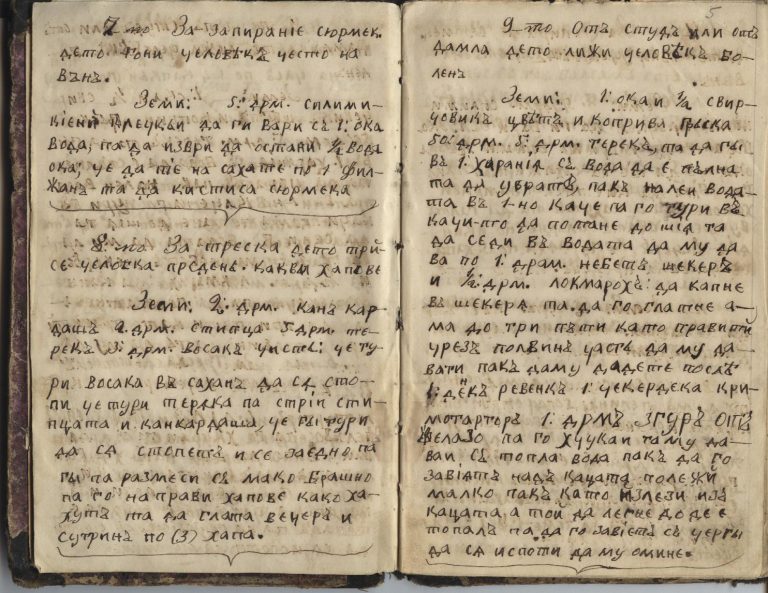 7 то За запиранїе сюрмек
дето гони человѣкъ често на
вънъ.
Земи: 5: дрм. силими-
кїени да ги вари съ 1: ока
вода, та да изври да остани ¼ вода
ока, че да пїе на сахате по 1 фил-
жанъ та да кистиса сюрмека
8: то За треска дето тре-
се человѣка прѣденъ. какви хапове
Земи: 2: дрм. канъ кар-
дашъ 2. дрм. стипца 5: дрм. те-
рекъ 3: дрм. восакъ чистъ: че ту-
ри восака въ саханъ да ся сто-
пи че тури теряка па стрїи сти-
пцата и канкардаша, че гы тури
да ся стопетъ и се заедно, па
гы па размеси съ мако брашно
па го направи хапове како ха-
хутъ та да глата вечеръ и
сутринъ по (3) хапа.
5
9 то Отъ студъ или отъ
дамла дето лижи человѣкъ бо-
ленъ
Земи: 1: ока и ½ свир-
човикъ цвѣтъ и коприва
50: дрм. 5: дрм. терекъ, та да гы
въ 1: харанїя съ вода да е пълна
та дя увратъ, пакъ налеи вода-
та въ 1-но каче па го тури въ
качи-тго да потане до шїя та
да седи въ водата да му да
ва по 1: драм. небетъ шекеръ
и ½: дрм. локмарохъ: да капне
въ шекеря та да го глатне а-
ма до три пъти като правити
чрезъ половинъ часъ да му да
вати пакъ даму дадете послѣ
1: денкъ ревенкъ 1: чекердека кри-
мотарторъ 1: дрмъ згуръ отъ
желазо па го хчукаи та му да-
ваи съ топла вода пакъ да го
завїятъ надъ кацата полежи
малко пакъ като излези изъ
кацата а той да легне до де е
топалъ па да го завїетъ съ чергы
да ся испоти да му омине.